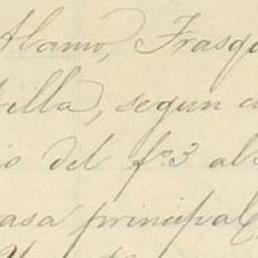 Alamo, Frasqu
illa, segun c
io del fº 3 al
asa principal